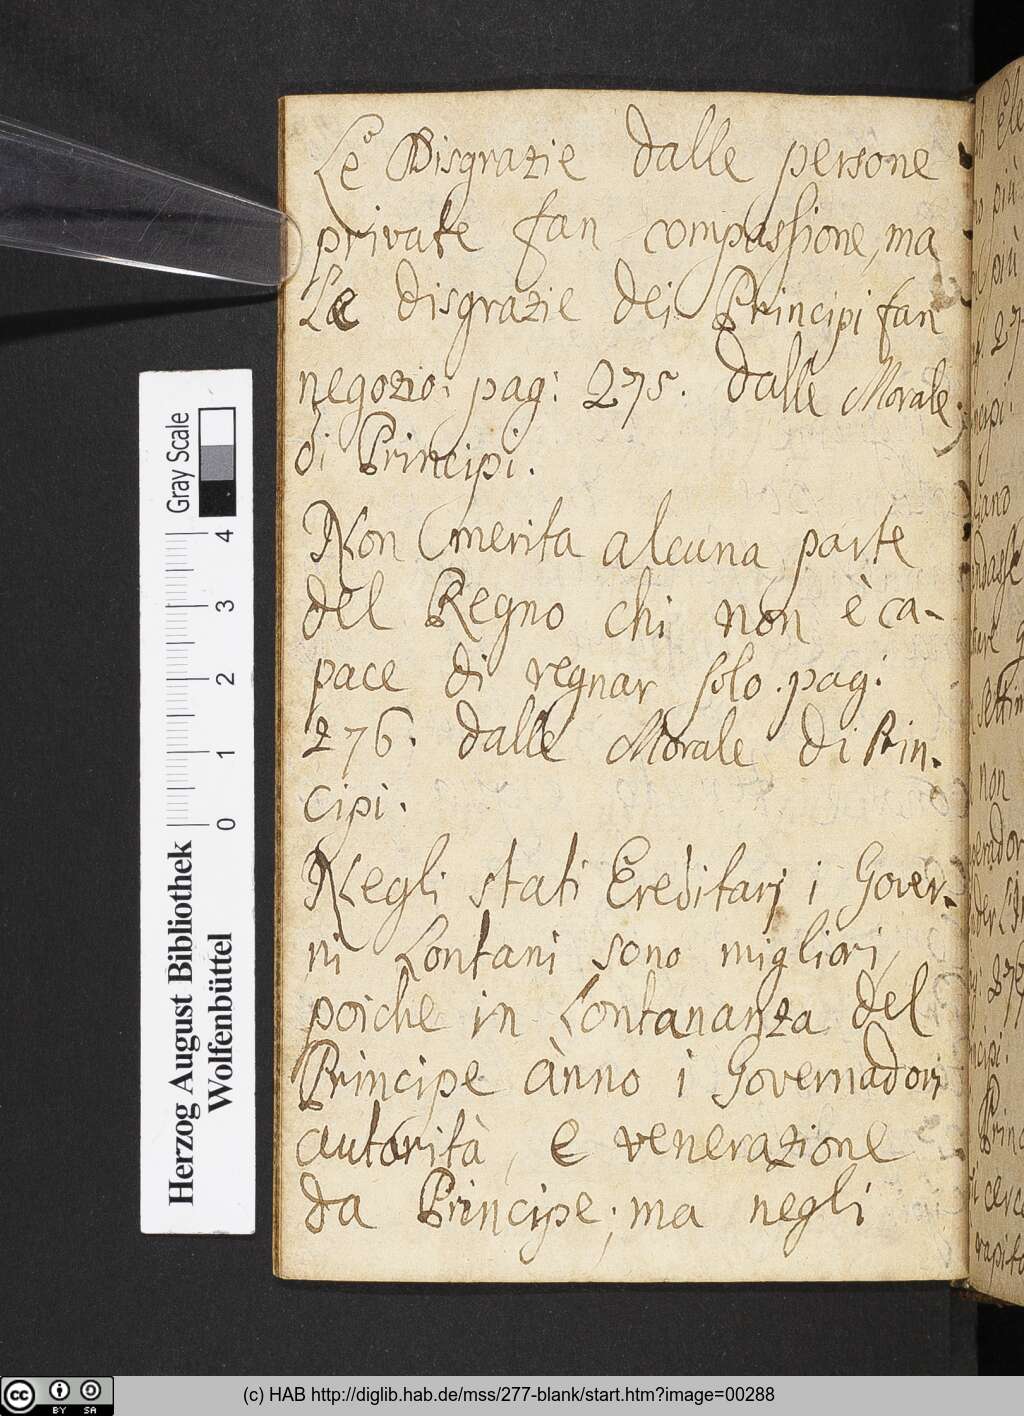 Le Disgrazie dalle persone
private fan compassione, ma
Le disgrazie dei Principi fan
negozio: pag: 275. dalle Morale
di Principi.
Non merita alcuna parte
del Regno chi non è ca-
pace di regnar solo. pag:
276. dalle Morale di Prin-
cipi.
Negli stati Ereditarj i Gover-
ni Lontani sono migliori,
poiche in Lontananza del
Principe ànno i Governadori
autorità, e venerazione
da Principe; ma negli
Gray Scale
0 1 2 3 4
Herzog August Bibliothek
Wolfenbüttel
più
più
non
cc BY SA
(c) HAB http://diglib.hab.de/mss/277-blank/start.htm?image=00288